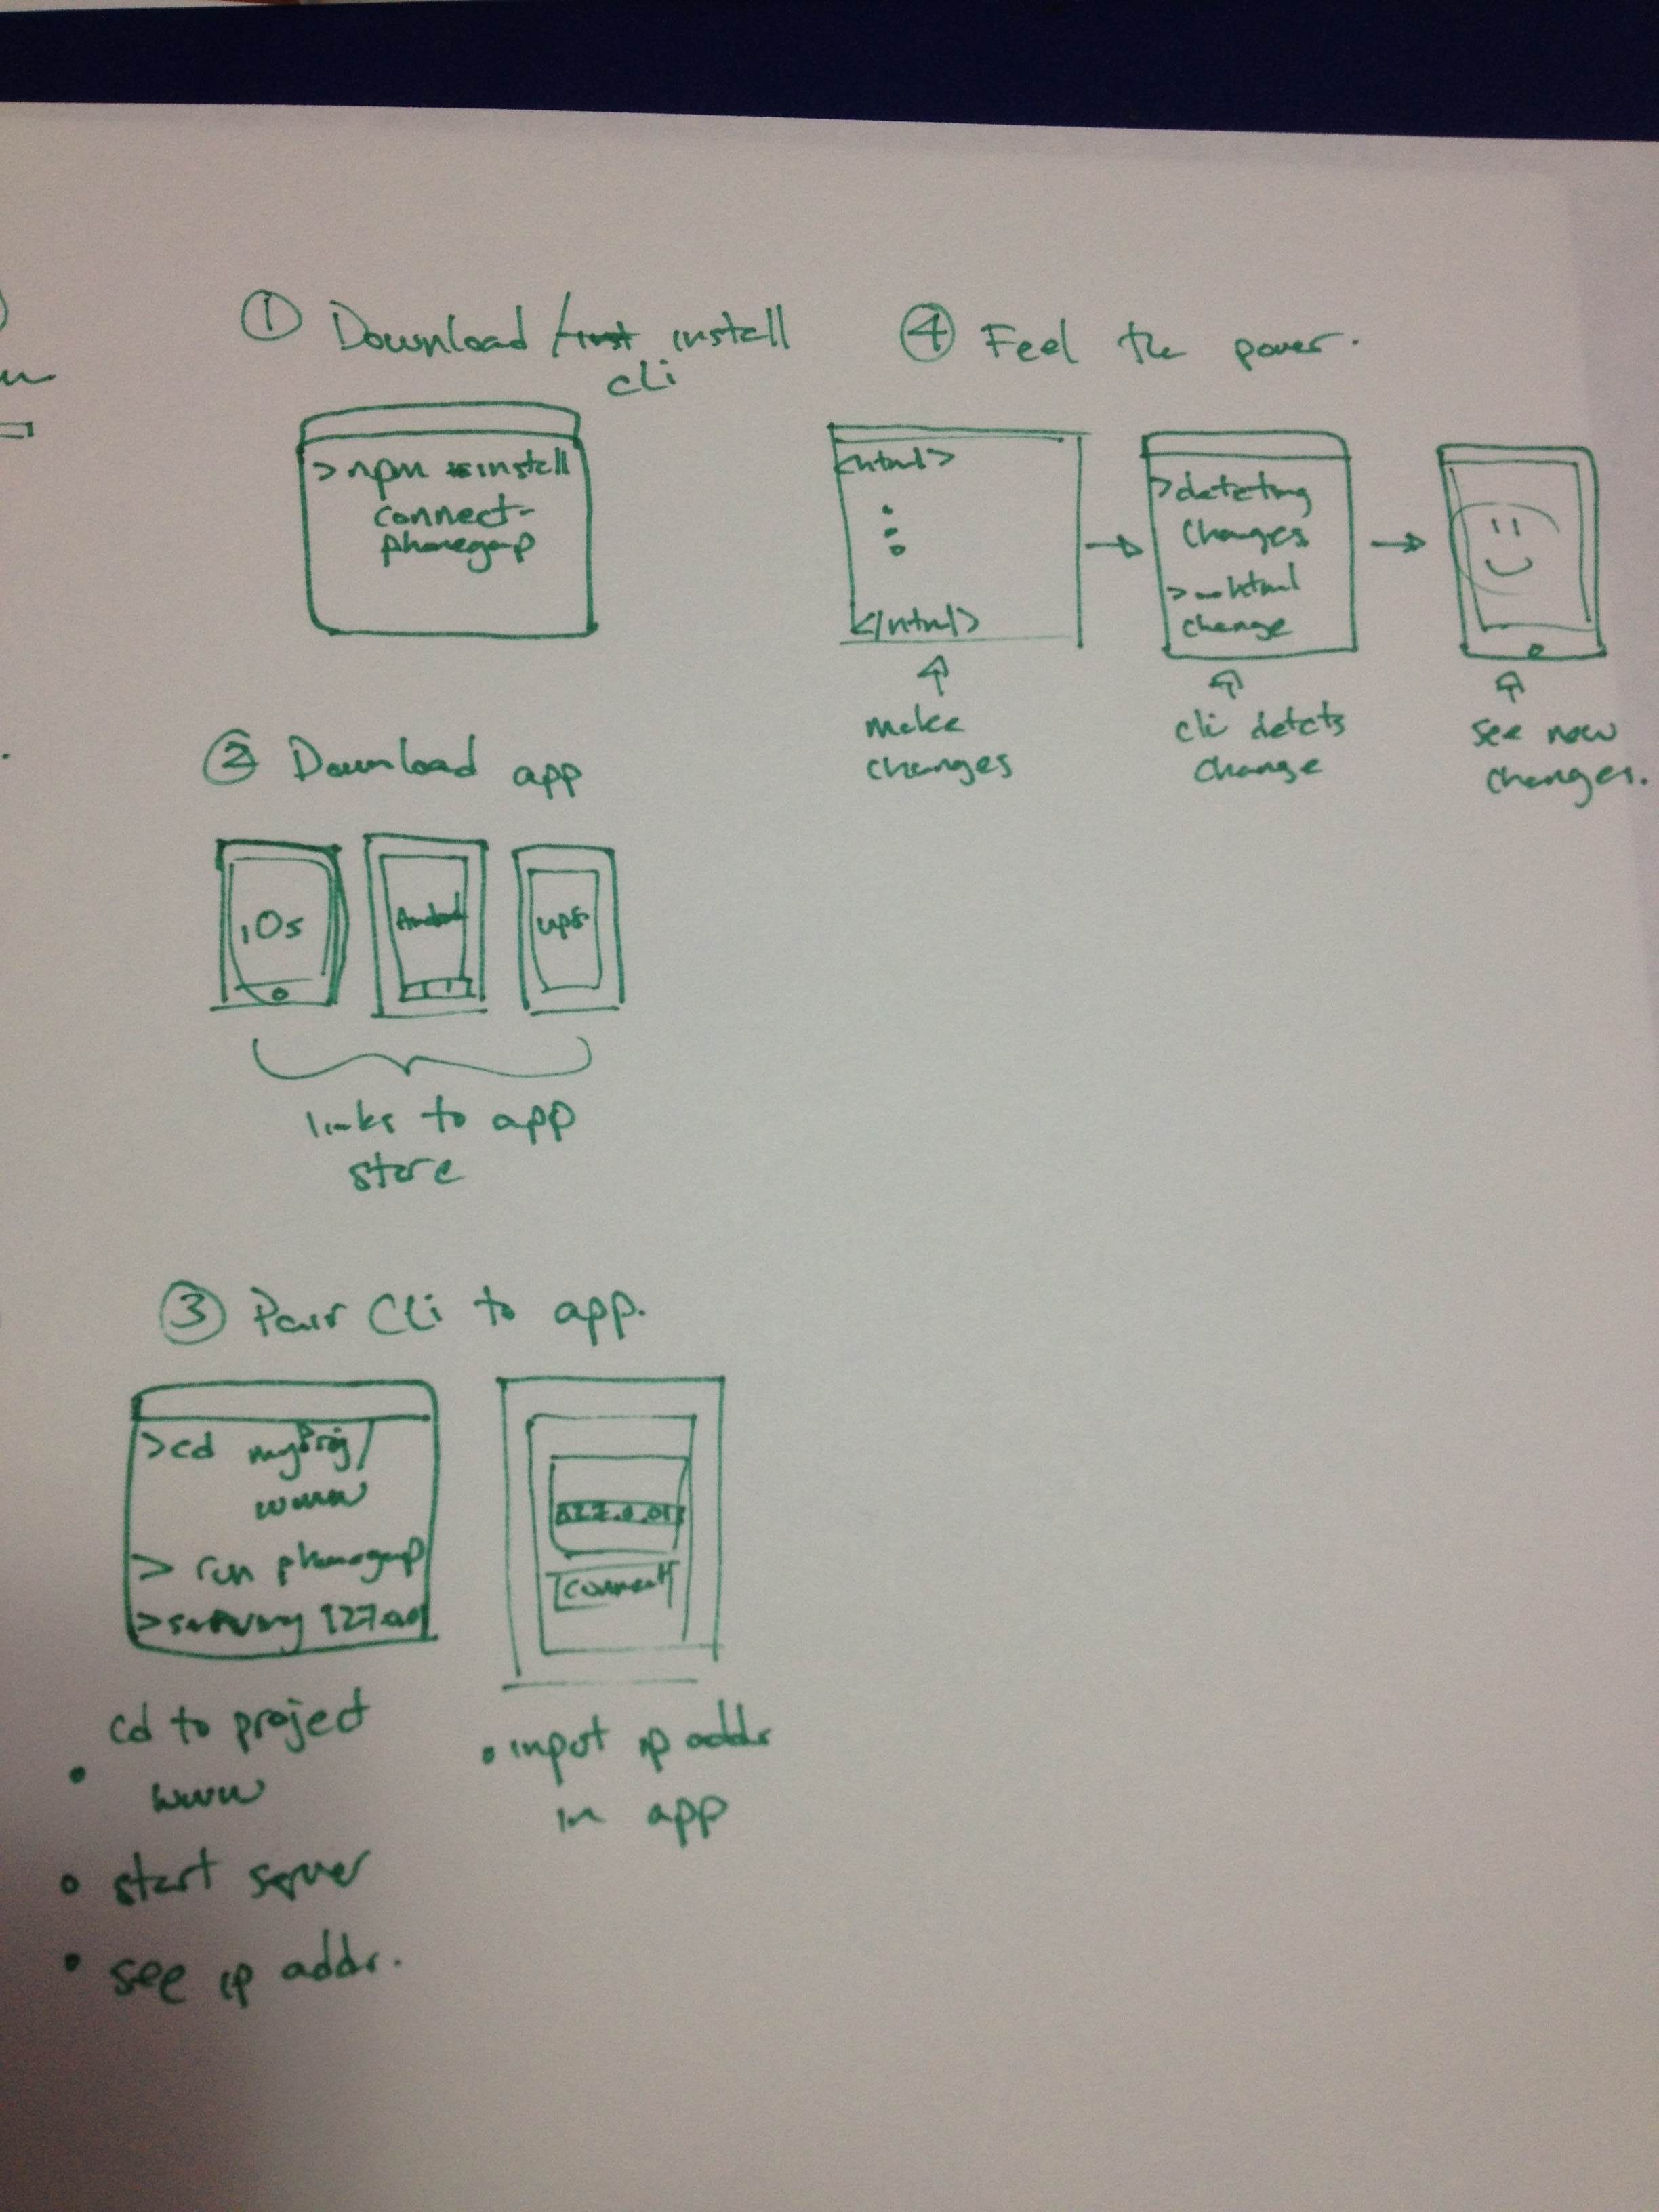 ① Download / install
cli
> npm install
connect-
phonegap
② Download app
iOs
Android
links to app
store
③ Pair Cli to app.
> cd myProj/
www
> run phonegap
> serving 127.0.01
127.0.01
connect
cd to project
• www
• start server
• see ip addr.
• input ip addr
in app
④ Feel the power.
<html>
</html>
> detecting
changes
> html
change
make
changes
cli detcts
change
see new
changes.